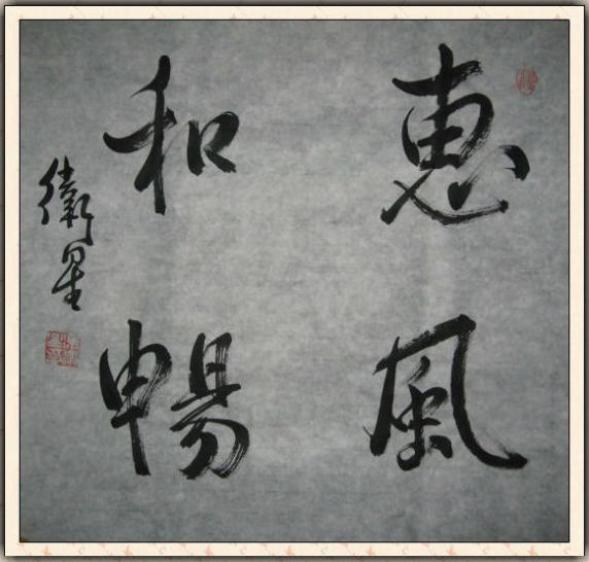 惠風
和暢
衛星